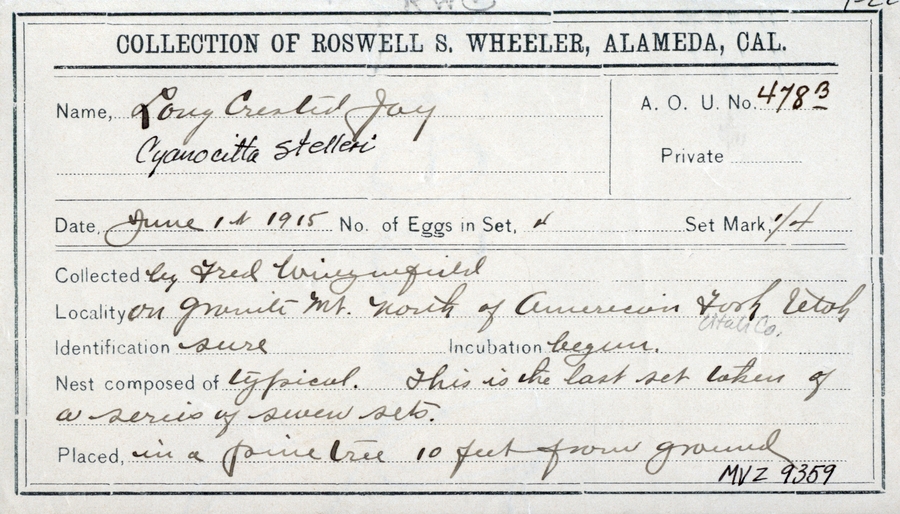 COLLECTION OF ROSWELL S. WHEELER, ALAMEDA, CAL.
Name, Long Crested Jay
A. O. U. No. 478B
Cyanocitta stelleri
Private
Date, June 1st 1915 No. of Eggs in Set, 4 Set Mark, 1/4
Collected by Fred
Locality on granite Mt. North of American Fork Utah
Utah Co.
Identification sure Incubation begun.
Nest composed of typical. This is the last set taken of
a series of seven sets.
Placed, in a pine tree 10 feet from ground
MVZ 9359